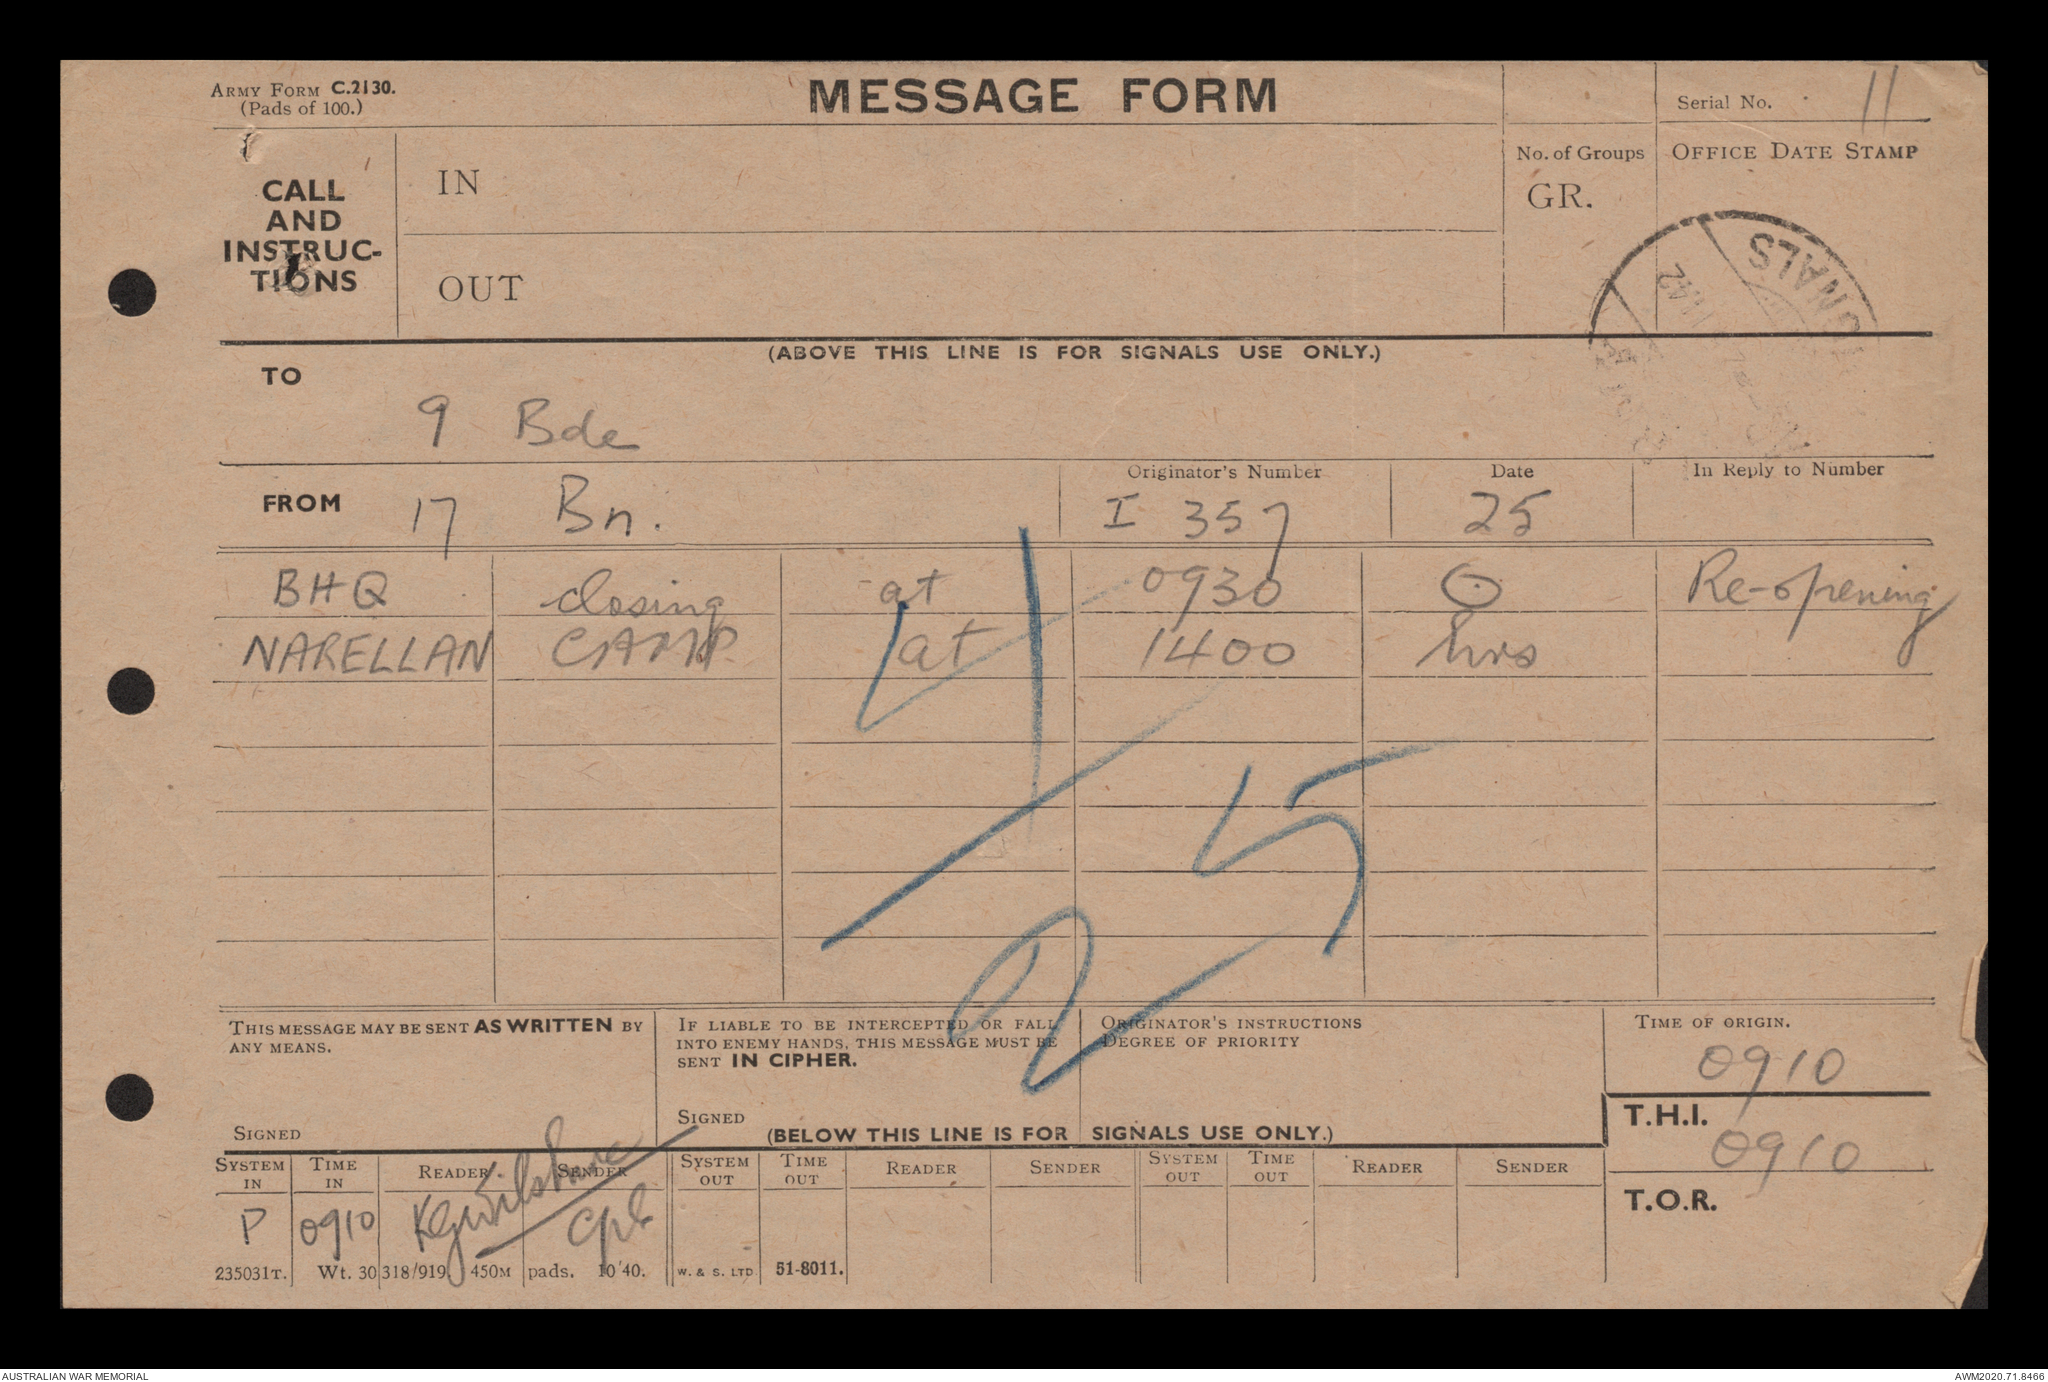 ARMY FORM C.2130.
(Pads of 100.)
MESSAGE FORM
Serial No. 11
CALL AND INSTRUC-TIONS
IN
OUT
No. of Groups
GR.
OFFICE DATE STAMP
SIGNALS
(ABOVE THIS LINE IS FOR SIGNALS USE ONLY.)
TO
9 Bde
FROM 17 Bn.
Originator's Number
I 357
Date
25
In Reply to Number
BHQ closing at 0930 Re-opening
NARELLAN CAMP at 1400 hrs
4/25
THIS MESSAGE MAY BE SENT AS WRITTEN BY
ANY MEANS.
SIGNED
IF LIABLE TO BE INTERCEPTED OR FALL
INTO ENEMY HANDS, THIS MESSAGE MUST BE
SENT IN CIPHER.
SIGNED
ORIGINATOR'S INSTRUCTIONS
DEGREE OF PRIORITY
TIME OF ORIGIN.
0910
T.H.I.
0910
T.O.R.
(BELOW THIS LINE IS FOR SIGNALS USE ONLY.)
SYSTEM IN TIME IN READER SENDER SYSTEM OUT TIME OUT READER SENDER SYSTEM OUT TIME OUT READER SENDER
P 0910 Cpl
235031T. Wt. 30318/919. 450M pads. 10/40. W. & S. LTD 51-8011.
AUSTRALIAN WAR MEMORIAL
AWM2020.71.8466